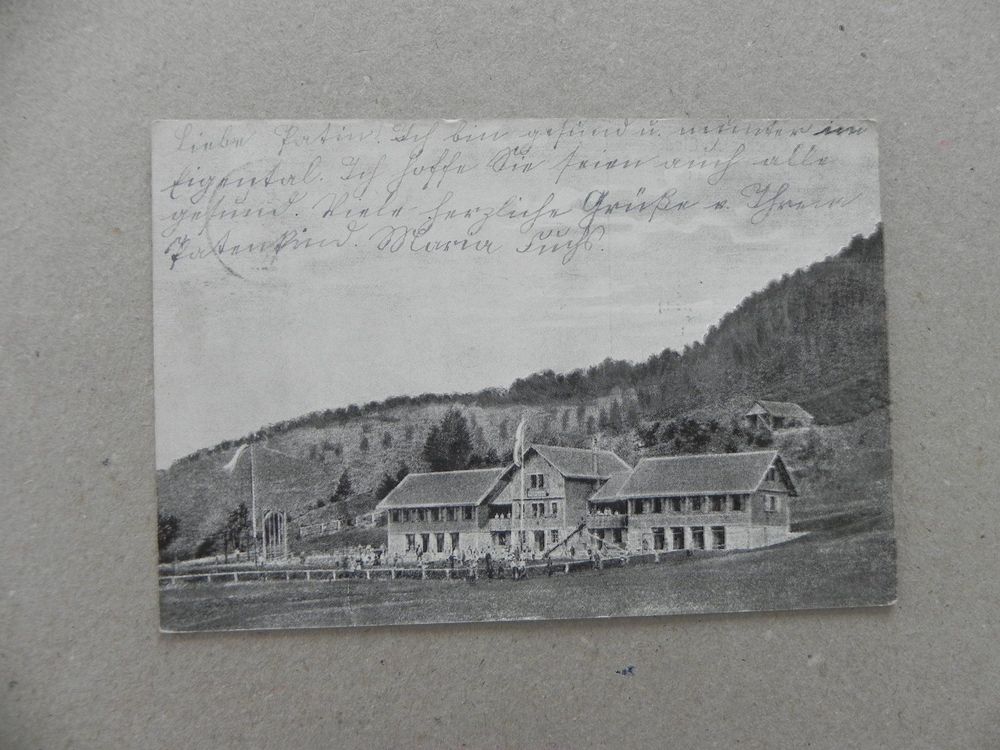 Liebe Patin! Ich bin gesund u. munter im
Eigental. Ich hoffe Sie seien auch alle
gesund. Viele herzliche Grüße v. Ihrem
Patenkind. Maria Fuchs.